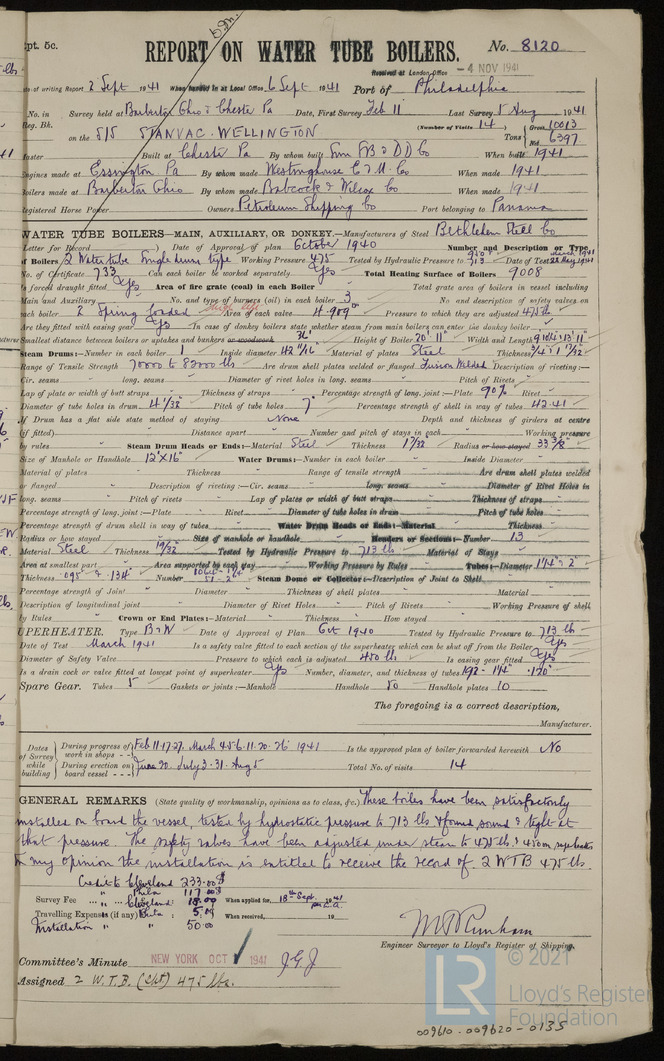 Rpt. 5c.
REPORT ON WATER TUBE BOILERS.
No. 8120
Received at London Office -4 NOV 1941
Date of writing Report 2 Sept 1941 When handed in at Local Office 6 Sept 1941 Port of Philadelphia
No. in Reg. Bk. Survey held at Barberton Ohio & Chester Pa Date, First Survey Feb 11 Last Survey 5 Aug 1941
on the S/S STANVAC WELLINGTON (Number of Visits 14) Tons Gross 10013 Net 6397
Master Built at Chester Pa By whom built Sun SB & DD Co When built 1941
Engines made at Essington Pa By whom made Westinghouse E & M Co When made 1941
Boilers made at Barberton Ohio By whom made Babcock & Wilcox Co When made 1941
Registered Horse Power Owners Petroleum Shipping Co Port belonging to Panama
WATER TUBE BOILERS—MAIN, AUXILIARY, OR DONKEY.—Manufacturers of Steel Bethlehem Steel Co
(Letter for Record ) Date of Approval of plan October 1940 Number and Description or Type
of Boilers 2 Water tube Single drum type Working Pressure 475 Tested by Hydraulic Pressure to 713 Date of Test March 1941
No. of Certificate 733 Can each boiler be worked separately Yes Total Heating Surface of Boilers 9008
Is forced draught fitted Yes Area of fire grate (coal) in each Boiler Total grate area of boilers in vessel including
Main and Auxiliary No. and type of burners (oil) in each boiler 3 No and description of safety valves on
each boiler 2 Spring loaded high lift Area of each valve 4.909" Pressure to which they are adjusted 475 lb
Are they fitted with easing gear Yes In case of donkey boilers state whether steam from main boilers can enter the donkey boiler
Smallest distance between boilers or uptakes and bunkers or woodwork 36" Height of Boiler 20' 11" Width and Length
Steam Drums:—Number in each boiler 1 Inside diameter 42 11/16" Material of plates Steel Thickness
Range of Tensile Strength 70000 to 82000 lbs Are drum shell plates welded or flanged Fusion Welded Description of riveting:—
Cir. seams long. seams Diameter of rivet holes in long. seams Pitch of Rivets
Lap of plate or width of butt straps Thickness of straps Percentage strength of long. joint:—Plate 90% Rivet
Diameter of tube holes in drum 4 1/32" Pitch of tube holes 7" Percentage strength of shell in way of tubes 42.41
If Drum has a flat side state method of staying None Depth and thickness of girders at centre
(if fitted) Distance apart Number and pitch of stays in each Working pressure
by rules Steam Drum Heads or Ends:—Material Steel Thickness 1 7/32 Radius or how stayed 33 3/8"
Size of Manhole or Handhole 12"X16" Water Drums:—Number in each boiler Inside Diameter
Material of plates Thickness Range of tensile strength Are drum shell plates welded
or flanged Description of riveting:—Cir. seams long. seams Diameter of Rivet Holes in
long. seams Pitch of rivets Lap of plates or width of butt straps Thickness of straps
Percentage strength of long. joint:—Plate Rivet Diameter of tube holes in drum Pitch of tube holes
Percentage strength of drum shell in way of tubes Water Drum Heads or Ends:—Material Thickness
Radius or how stayed Size of manhole or handhole Headers or Sections:—Number 13
Material Steel Thickness 19/32" Tested by Hydraulic Pressure to 713 lb Material of Stays
Area at smallest part Area supported by each stay Working Pressure by Rules Tubes:—Diameter 1 1/4" & 2"
Thickness .095 & .134" Number Steam Dome or Collector:—Description of Joint to Shell
Percentage strength of Joint Diameter Thickness of shell plates Material
Description of longitudinal joint Diameter of Rivet Holes Pitch of Rivets Working Pressure of shell
by Rules Crown or End Plates:—Material Thickness How stayed
SUPERHEATER. Type B & W Date of Approval of Plan Oct 1940 Tested by Hydraulic Pressure to 713 lb
Date of Test March 1941 Is a safety valve fitted to each section of the superheater which can be shut off from the Boiler Yes
Diameter of Safety Valve Pressure to which each is adjusted 450 lb Is easing gear fitted Yes
Is a drain cock or valve fitted at lowest point of superheater Yes Number, diameter, and thickness of tubes 192 - 1 1/4" .120"
Spare Gear. Tubes 5 Gaskets or joints:—Manhole Handhole 50 Handhole plates 10
The foregoing is a correct description,
Manufacturer.
Dates of Survey while building
During progress of work in shops - - Feb 11-17-27. March 4.5.6.11.20.26 1941 Is the approved plan of boiler forwarded herewith No
During erection on board vessel - - - June 20. July 3.31. Aug 5 Total No. of visits 14
GENERAL REMARKS (State quality of workmanship, opinions as to class, &c.) These boilers have been satisfactorily
installed on board the vessel, tested by hydrostatic pressure to 713 lbs & found sound & tight at
that pressure. The safety valves have been adjusted under steam to 475 lbs & 450 on superheater
In my opinion the installation is entitled to receive the record of 2 WTB 475 lbs
Credit to Cleveland 233.00
" Phila 117.00
Survey Fee " Cleveland 18.00 When applied for, 18th Sept. 1941
Travelling Expenses (if any) Phila: 5.00 When received, 19
Installation " 50.00
Engineer Surveyor to Lloyd's Register of Shipping.
Committee's Minute NEW YORK OCT 1 1941 J.G.J
Assigned 2 W.T.B. (Spt) 475 lbs.
© 2021
LR
Lloyd's Register Foundation
009610-009620-0135